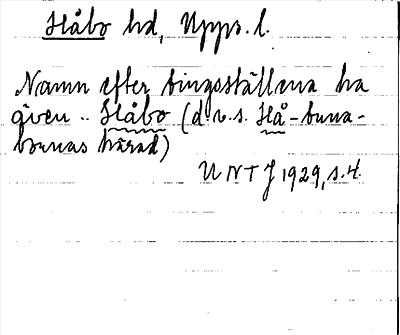 Håbo hd, Upps. l.
Namn efter tingsställena ha
även .. Håbo (d v. s. Hå-buna-
boarnas härad)
UNTJ 1929, s. 4.